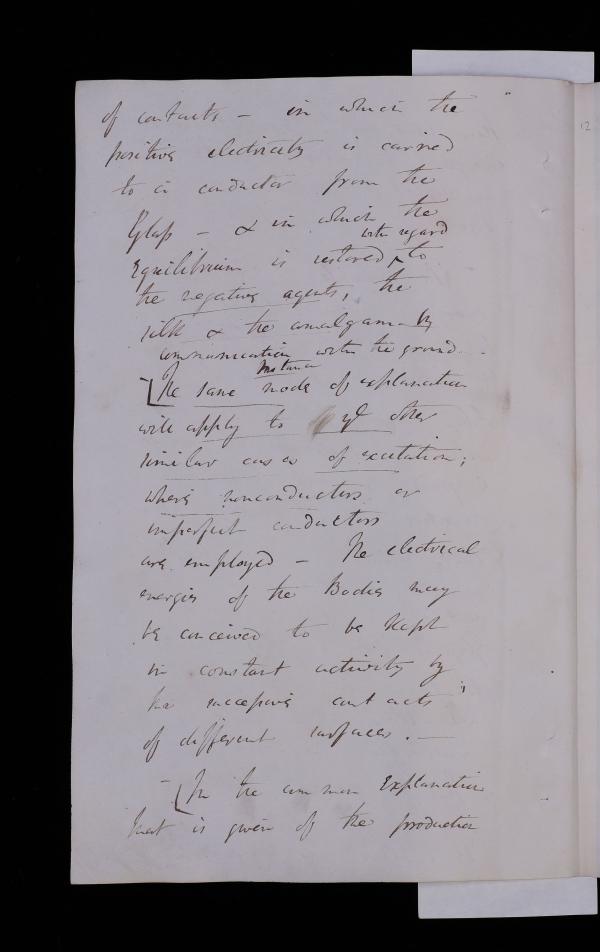 of contacts – in which the
positive electricity is carried
to a conductor from the
Glass – & in which the
with regard
Equilibrium is restored ^ to
the negative agents, the
silk & the amalgam by
communication with the ground
Instance
[The same mode of explanation
will apply to ye other
similar cases of excitation;
where nonconductors or
imperfect conductors
are employed – The electrical
energies of the Bodies may
be conceived to be kept
in constant activity by
the successive contacts ;
of different surfaces. —
– [In the common Explanation
that is given of the production
12